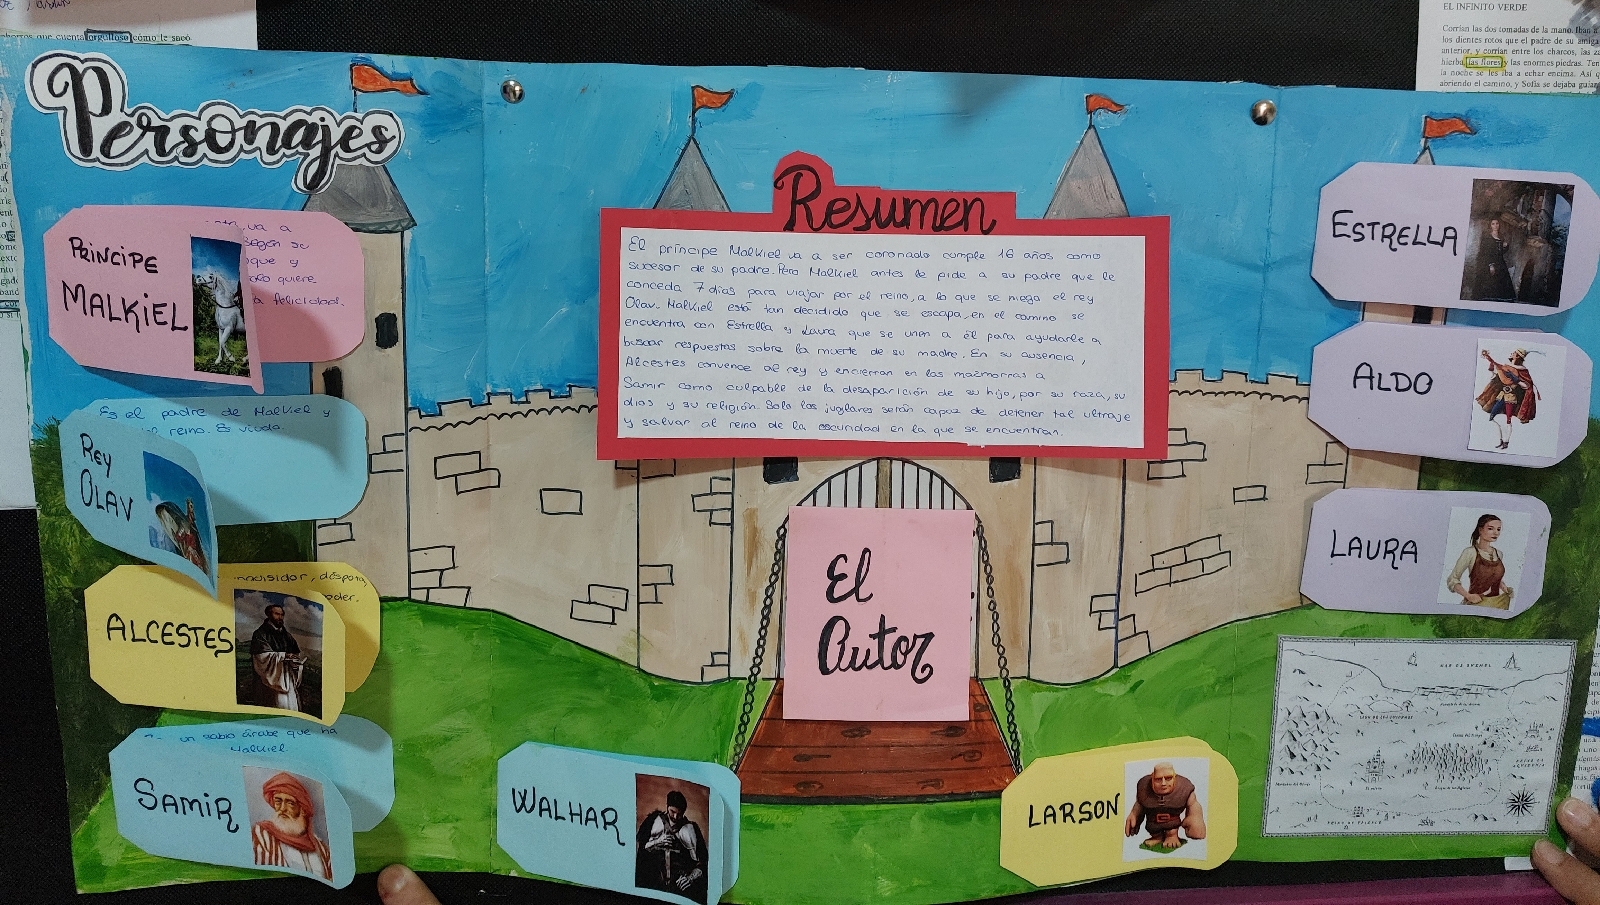 Personajes
PRÍNCIPE
MALKIEL
va a
según su
que y
solo quiere
a felicidad.
Es el padre de Malkiel y
del reino. Es viudo.
REY
OLAV
inquisidor, déspota,
poder.
ALCESTES
un sabio árabe que ha
Malkiel
SAMIR
WALHAR
Resumen
El príncipe Malkiel va a ser coronado cumple 16 años como
sucesor de su padre. Pero Malkiel antes le pide a su padre que le
conceda 7 días para viajar por el reino, a lo que se niega el rey
Olav. Malkiel está tan decidido que se escapa, en el camino se
encuentra con Estrella y Laura que se unen a él para ayudarle a
buscar respuestas sobre la muerte de su madre. En su ausencia,
Alcestes convence al rey y encierran en las mazmorras a
Samir como culpable de la desaparición de su hijo, por su raza, su
dios y su religión. Solo los juglares serán capaz de detener tal ultraje
y salvar al reino de la oscuridad en la que se encuentran.
El
Autor
LARSON
ESTRELLA
ALDO
LAURA
que cuenta orgulloso cómo le sacó
EL INFINITO VERDE
Corrían las dos tomadas de la mano. Iban a
los dientes rotos que el padre de su amiga
anterior, y corrían entre los charcos, las
hierba, las flores y las enormes piedras.
la noche se les iba a echar encima. Así
abriendo el camino, y Sofía se dejaba guiar